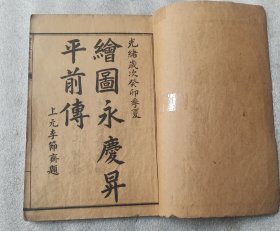 光緒歲次癸卯季夏
繪圖永慶昇
平前傳
上元李節齋題